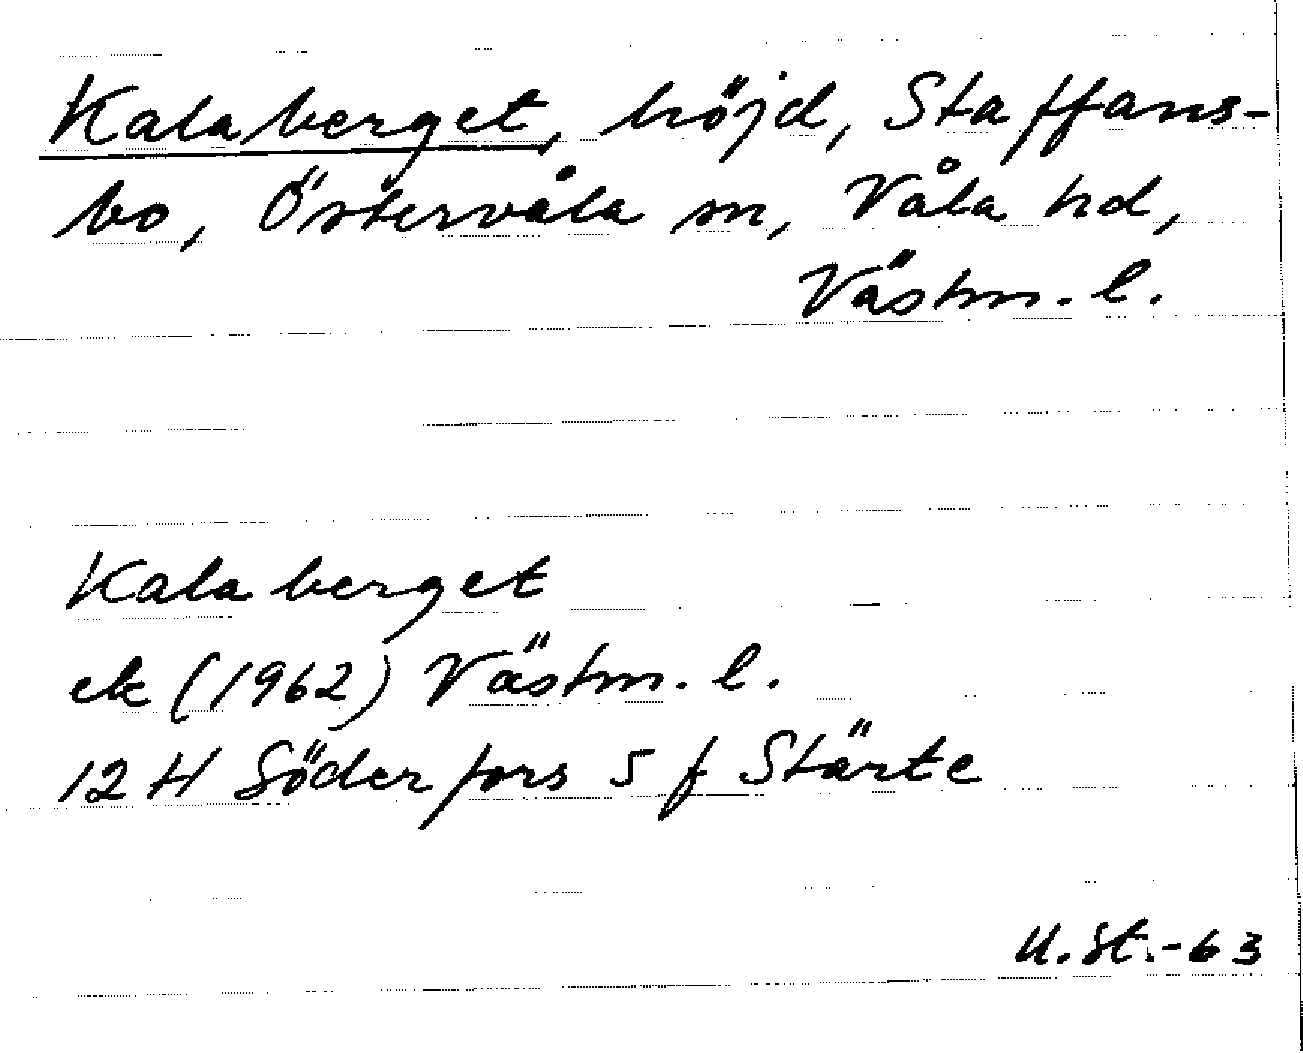 Kalaberget, höjd, Staffans-
bo, Östervåla sn, Våla hd,
Västm. l.
Kalaberget
ek (1962) Västm. l.
12 H Söderfors 5 f Stärte
U. St. -63